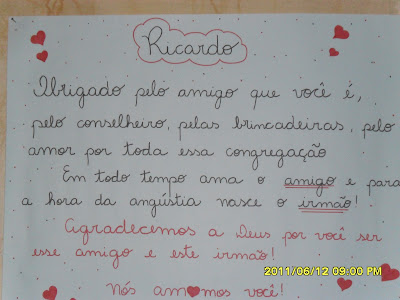 Ricardo
Obrigado pelo amigo que você é,
pelo conselheiro, pelas brincadeiras, pelo
amor por toda essa congregação
Em todo tempo ama o amigo e para
a hora da angústia nasce o irmão!
Agradecemos a Deus por você ser
esse amigo e este irmão!
2011/06/12 09:00 PM
Nós am♥mos você!